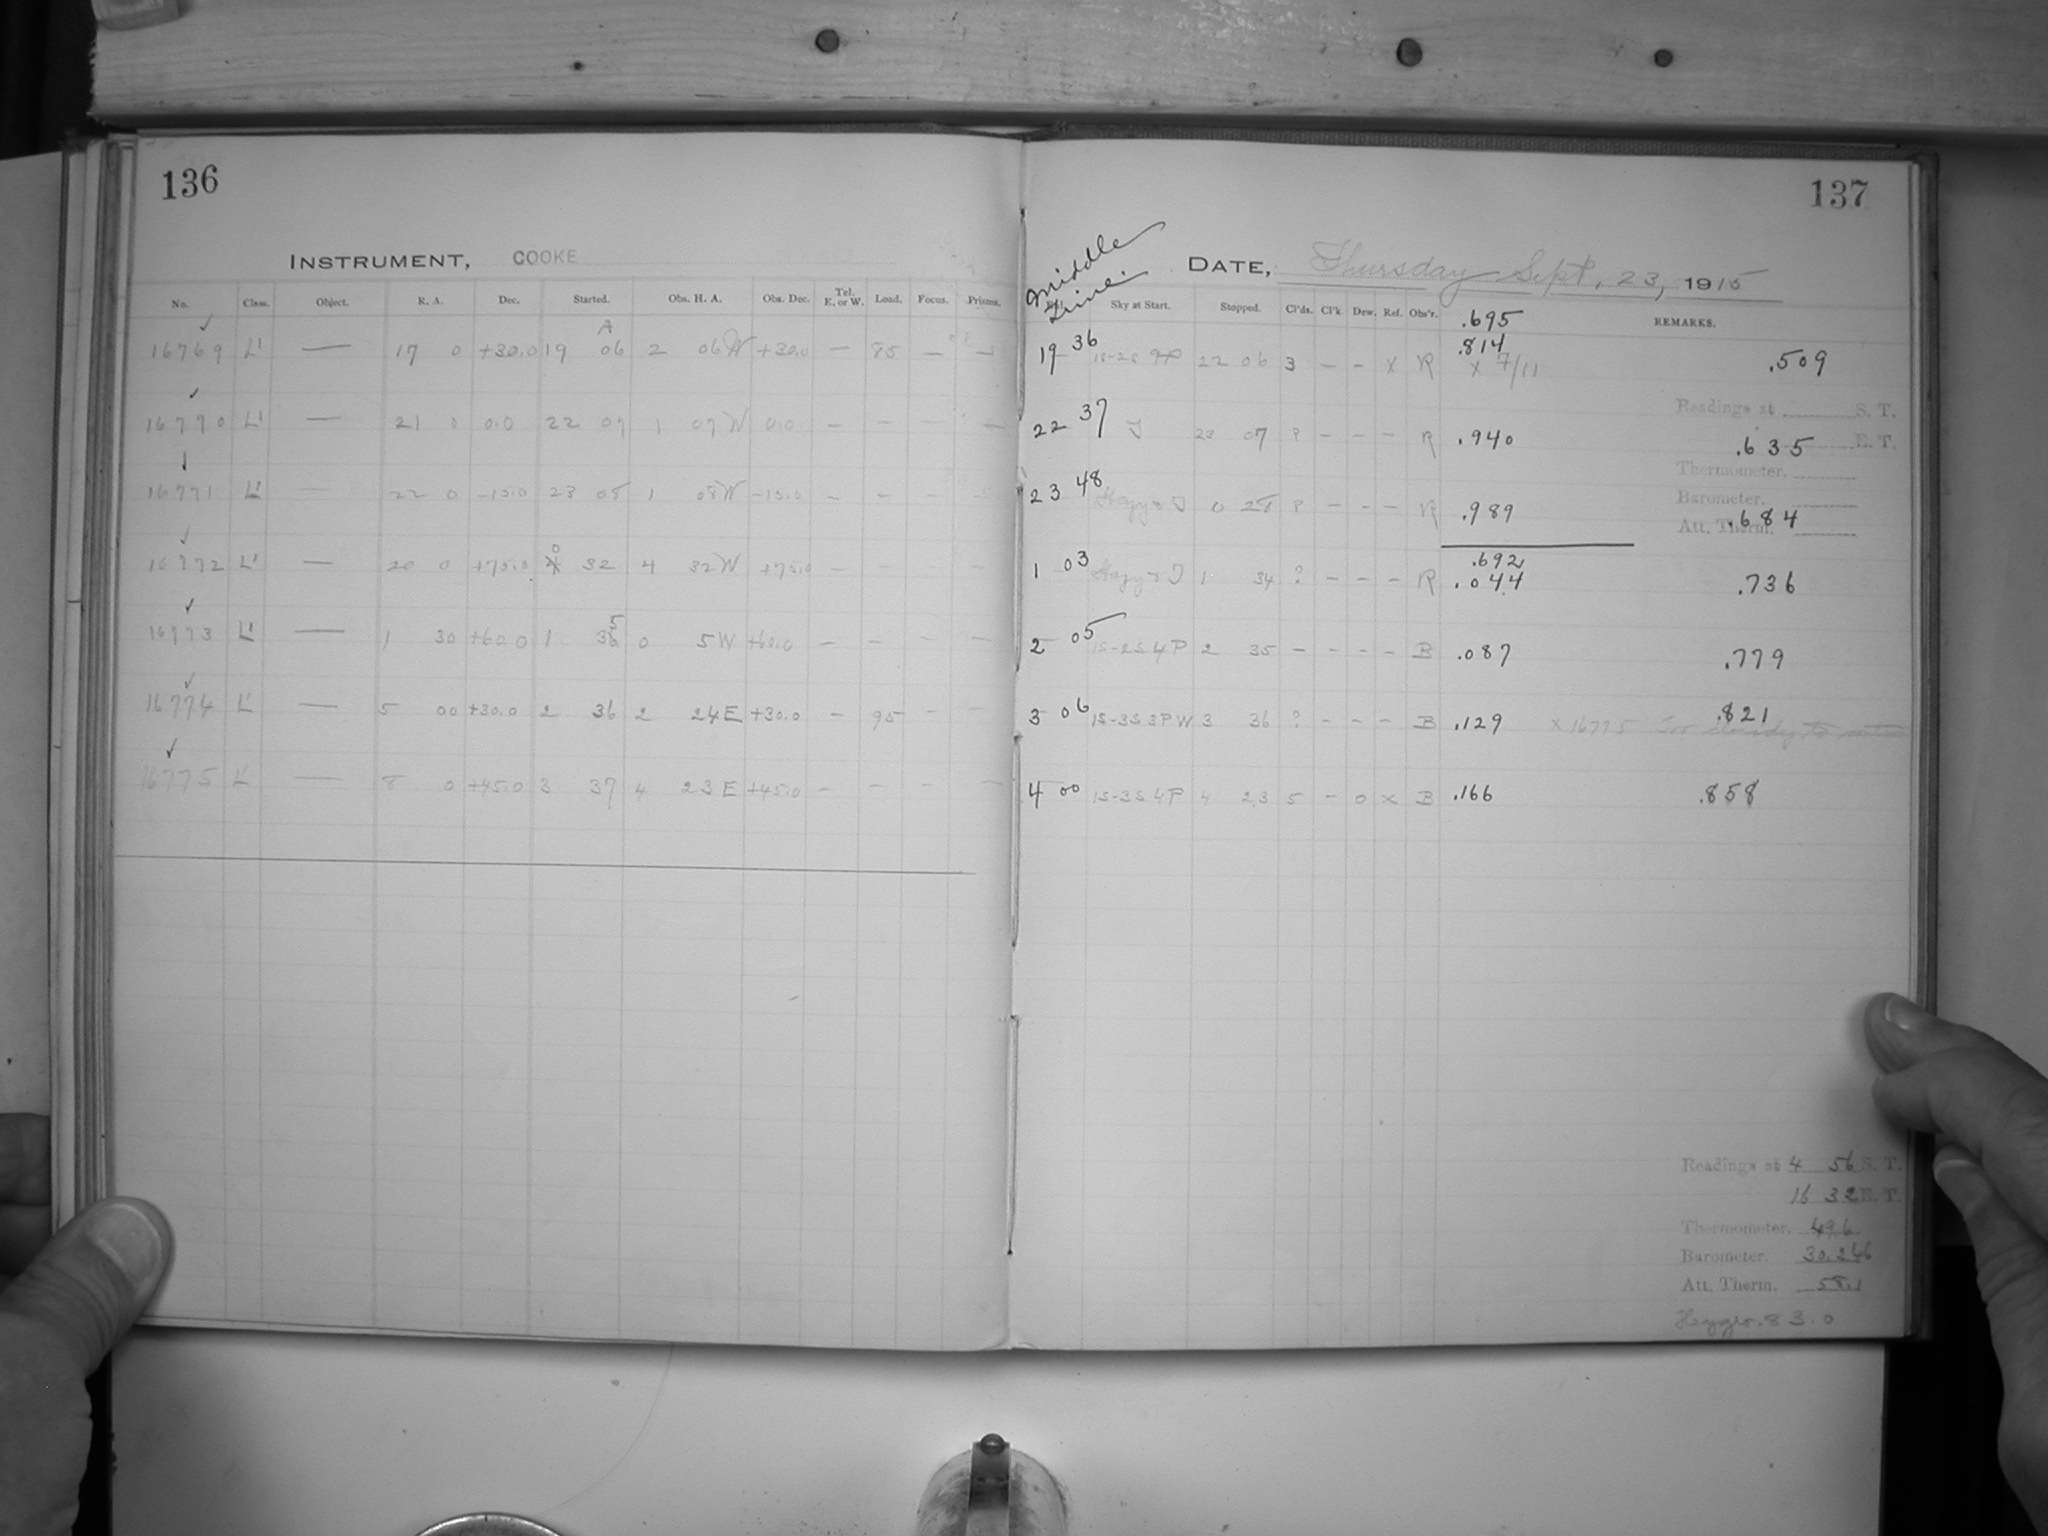 136
INSTRUMENT, COOKE
No. Class. Object. R. A. Dec. Started. Obs. H. A. Obs. Dec. Tel. E. or W. Load. Focus. Prisms.
A
16769 L' — 17 0 +30.0 19 06 2 06 W +30.0 — 85 — —
16770 L' — 21 0 0.0 22 07 1 07 W 0.0 — — — —
16771 L' — 22 0 -15.0 23 08 1 08 W -15.0 — — —
16772 L' — 20 0 +75.0 0 32 4 32 W +75.0 — — — —
16773 L' — 1 30 +60.0 1 35 0 5 W +60.0 — — — —
16774 L' — 5 00 +30.0 2 36 2 24 E +30.0 — 95 — —
16775 L' — 8 0 +45.0 3 37 4 23 E +45.0 — — — —
137
Middle Time
DATE, Thursday Sept. 23, 1915
Sky at Start. Stopped. Cl'ds. Cl'k Dew. Ref. Obs'r. REMARKS.
.695
.814
19 36 1S-2S 22 06 3 — — X R X 7/11 .509
Readings at S. T.
22 37 J 23 07 ? — — — R .940 .635 E. T.
Thermometer.
Barometer.
23 48 Hazy & J 0 28 ? — — — R .989 Att. Therm. .684
.692
1 03 Hazy & J 1 34 ? — — — R .044 .736
2 05 1S-2S 4P 2 35 — — — — B .087 .779
3 06 1S-3S 3PW 3 36 ? — — — B .129 X 16775 Too cloudy to .821
4 00 1S-3S 4P 4 23 5 — 0 X B .166 .858
Readings at 4 56 S. T.
16 32 E. T.
Thermometer. 49.6
Barometer. 30.246
Att. Therm. 58.1
83.0